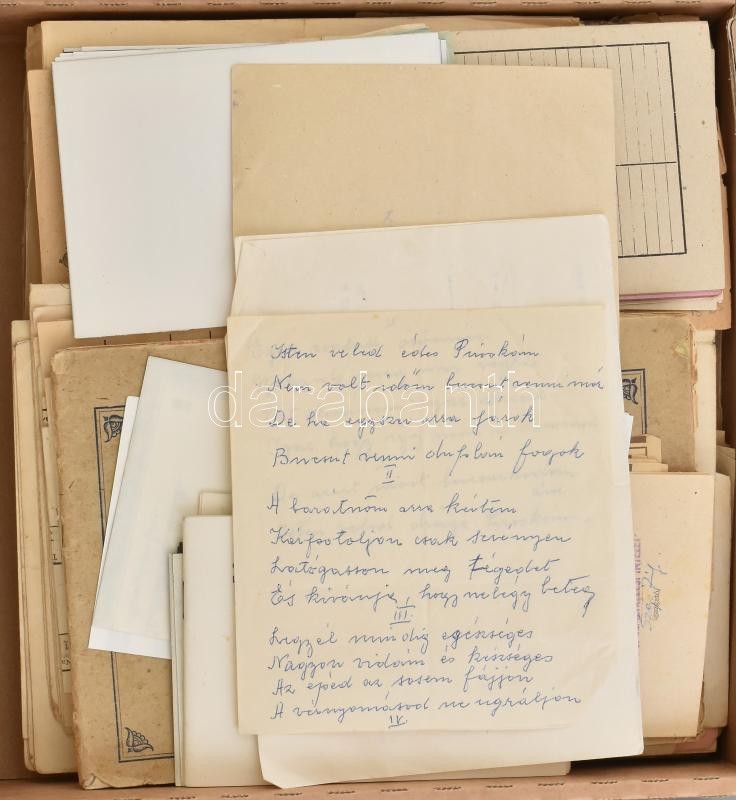 Isten veled édes Piroskám
Nem volt időm bucsut venni már
De ha egyszer arra járok
Bucsut venni duplán fogok
II
A barátnőm arra kértem
Kárpótoljon csak serényen
Látogasson meg Tégedet
És kívánja, hogy ne légy beteg
III.
Legyél mindig egészséges
Nagyon vidám és készséges
Az epéd az sosem fájjon
A vérnyomásod ne ugráljon
IV.
darabanth